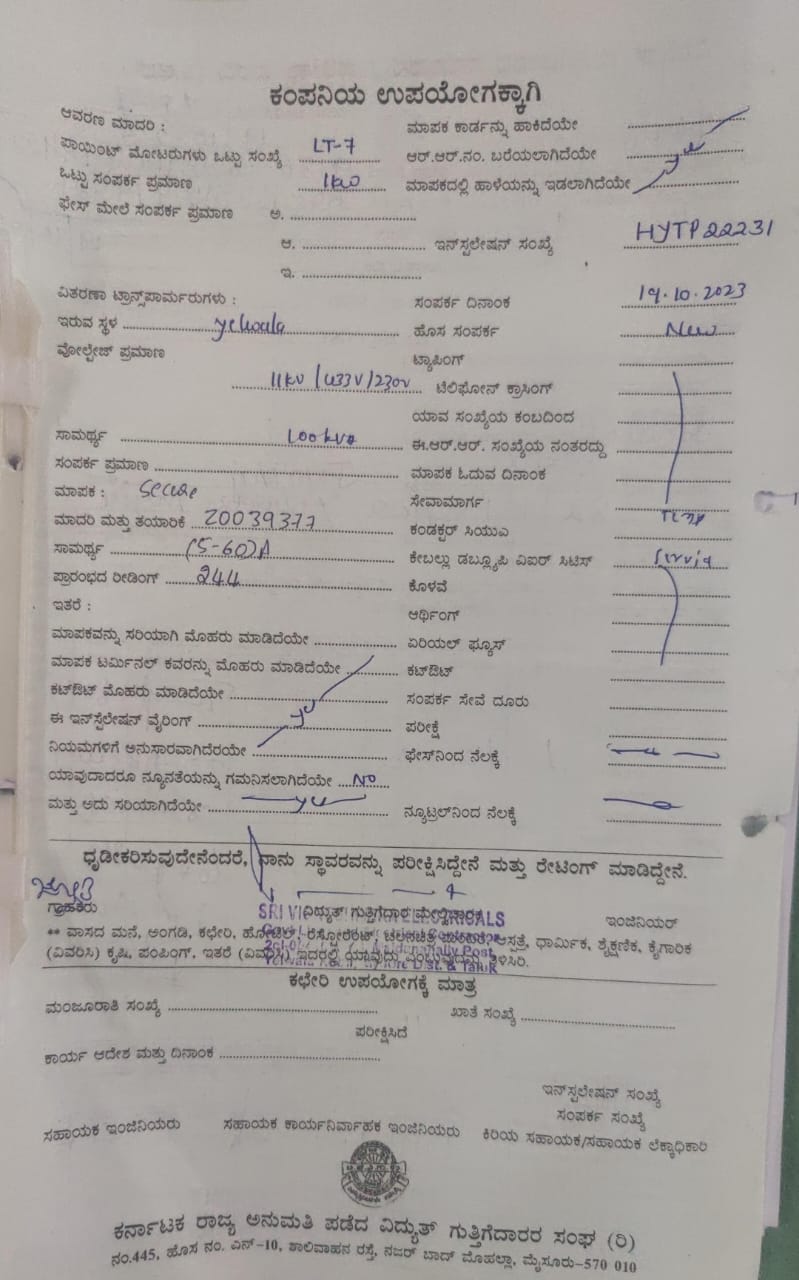 ಕಂಪನಿಯ ಉಪಯೋಗಕ್ಕಾಗಿ
ಆವರಣ ಮಾದರಿ : ಮಾಪಕ ಕಾರ್ಡನ್ನು ಹಾಕಿದೆಯೇ
ಪಾಯಿಂಟ್ ಮೋಟರುಗಳು ಒಟ್ಟು ಸಂಖ್ಯೆ LT-7 ಆರ್.ಆರ್.ನಂ. ಬರೆಯಲಾಗಿದೆಯೇ
ಒಟ್ಟು ಸಂಪರ್ಕ ಪ್ರಮಾಣ 1kw ಮಾಪಕದಲ್ಲಿ ಹಾಳೆಯನ್ನು ಇಡಲಾಗಿದೆಯೇ
ಫೇಸ್ ಮೇಲೆ ಸಂಪರ್ಕ ಪ್ರಮಾಣ ಅ.
ಆ. ಇನ್‌ಸ್ಟಲೇಷನ್ ಸಂಖ್ಯೆ HYTP22231
ಇ.
ವಿತರಣಾ ಟ್ರಾನ್ಸ್‌ಫಾರ್ಮರುಗಳು : ಸಂಪರ್ಕ ದಿನಾಂಕ 19.10.2023
ಇರುವ ಸ್ಥಳ yelwala ಹೊಸ ಸಂಪರ್ಕ New
ವೋಲ್ಟೇಜ್ ಪ್ರಮಾಣ ಟ್ಯಾಪಿಂಗ್
11kv/433V/230v ಟೆಲಿಫೋನ್ ಕ್ರಾಸಿಂಗ್
ಯಾವ ಸಂಖ್ಯೆಯ ಕಂಬದಿಂದ
ಸಾಮರ್ಥ್ಯ 100kva ಈ.ಆರ್.ಆರ್. ಸಂಖ್ಯೆಯ ನಂತರದ್ದು
ಸಂಪರ್ಕ ಪ್ರಮಾಣ ಮಾಪಕ ಓದುವ ದಿನಾಂಕ
ಮಾಪಕ : Secure ಸೇವಾಮಾರ್ಗ
ಮಾದರಿ ಮತ್ತು ತಯಾರಿಕೆ 20039377 ಕಂಡಕ್ಟರ್ ಸಿಯುಎ
ಸಾಮರ್ಥ್ಯ (5-60)A ಕೇಬಲ್ಲು ಡಬ್ಲ್ಯೂಪಿ ವಿಐರ್ ಸಿಟಿಸ್
ಪ್ರಾರಂಭದ ರೀಡಿಂಗ್ 244 ಕೊಳವೆ
ಇತರೆ : ಆರ್ಥಿಂಗ್
ಮಾಪಕವನ್ನು ಸರಿಯಾಗಿ ಮೊಹರು ಮಾಡಿದೆಯೇ ಏರಿಯಲ್ ಫ್ಯೂಸ್
ಮಾಪಕ ಟರ್ಮಿನಲ್ ಕವರನ್ನು ಮೊಹರು ಮಾಡಿದೆಯೇ ಕಟ್‌ಔಟ್
ಕಟ್‌ಔಟ್ ಮೊಹರು ಮಾಡಿದೆಯೇ ಸಂಪರ್ಕ ಸೇವೆ ದೂರು
ಈ ಇನ್‌ಸ್ಟೆಲೇಷನ್ ವೈರಿಂಗ್ ಪರೀಕ್ಷೆ
ನಿಯಮಗಳಿಗೆ ಅನುಸಾರವಾಗಿದೆರಯೇ ಫೇಸ್‌ನಿಂದ ನೆಲಕ್ಕೆ
ಯಾವುದಾದರೂ ನ್ಯೂನತೆಯನ್ನು ಗಮನಿಸಲಾಗಿದೆಯೇ NO
ಮತ್ತು ಅದು ಸರಿಯಾಗಿದೆಯೇ ನ್ಯೂಟ್ರಲ್‌ನಿಂದ ನೆಲಕ್ಕೆ
ಧೃಡೀಕರಿಸುವುದೇನೆಂದರೆ, ನಾನು ಸ್ಥಾವರವನ್ನು ಪರೀಕ್ಷಿಸಿದ್ದೇನೆ ಮತ್ತು ರೇಟಿಂಗ್ ಮಾಡಿದ್ದೇನೆ.
ಗ್ರಾಹಕರು ವಿದ್ಯುತ್ ಗುತ್ತಿಗೆದಾರ ಮೇಲ್ವಿಚಾರಕ ಇಂಜಿನಿಯರ್
** ವಾಸದ ಮನೆ, ಅಂಗಡಿ, ಕಛೇರಿ, ಹೋಟೆಲ್, ರೆಸ್ಟೋರೆಂಟ್, ಆಸ್ಪತ್ರೆ, ಧಾರ್ಮಿಕ, ಶೈಕ್ಷಣಿಕ, ಕೈಗಾರಿಕ
(ವಿವರಿಸಿ) ಕೃಷಿ, ಪಂಪಿಂಗ್, ಇತರೆ (ವಿವರಿಸಿ) ಇದರಲ್ಲಿ ಯಾವುದು ಎಂಬುವುದನ್ನು ತಿಳಿಸಿರಿ.
ಕಛೇರಿ ಉಪಯೋಗಕ್ಕೆ ಮಾತ್ರ
ಮಂಜೂರಾತಿ ಸಂಖ್ಯೆ ಖಾತೆ ಸಂಖ್ಯೆ
ಪರೀಕ್ಷಿಸಿದೆ
ಕಾರ್ಯ ಆದೇಶ ಮತ್ತು ದಿನಾಂಕ
ಇನ್‌ಸ್ಟಲೇಷನ್ ಸಂಖ್ಯೆ
ಸಂಪರ್ಕ ಸಂಖ್ಯೆ
ಸಹಾಯಕ ಇಂಜಿನಿಯರು ಸಹಾಯಕ ಕಾರ್ಯನಿರ್ವಾಹಕ ಇಂಜಿನಿಯರು ಕಿರಿಯ ಸಹಾಯಕ/ಸಹಾಯಕ ಲೆಕ್ಕಾಧಿಕಾರಿ
ಕರ್ನಾಟಕ ರಾಜ್ಯ ಅನುಮತಿ ಪಡೆದ ವಿದ್ಯುತ್ ಗುತ್ತಿಗೆದಾರರ ಸಂಘ (ರಿ)
ನಂ.445, ಹೊಸ ನಂ. ಎನ್-10, ಶಾಲಿವಾಹನ ರಸ್ತೆ, ನಜರ್ ಬಾದ್ ಮೊಹಲ್ಲಾ, ಮೈಸೂರು-570 010